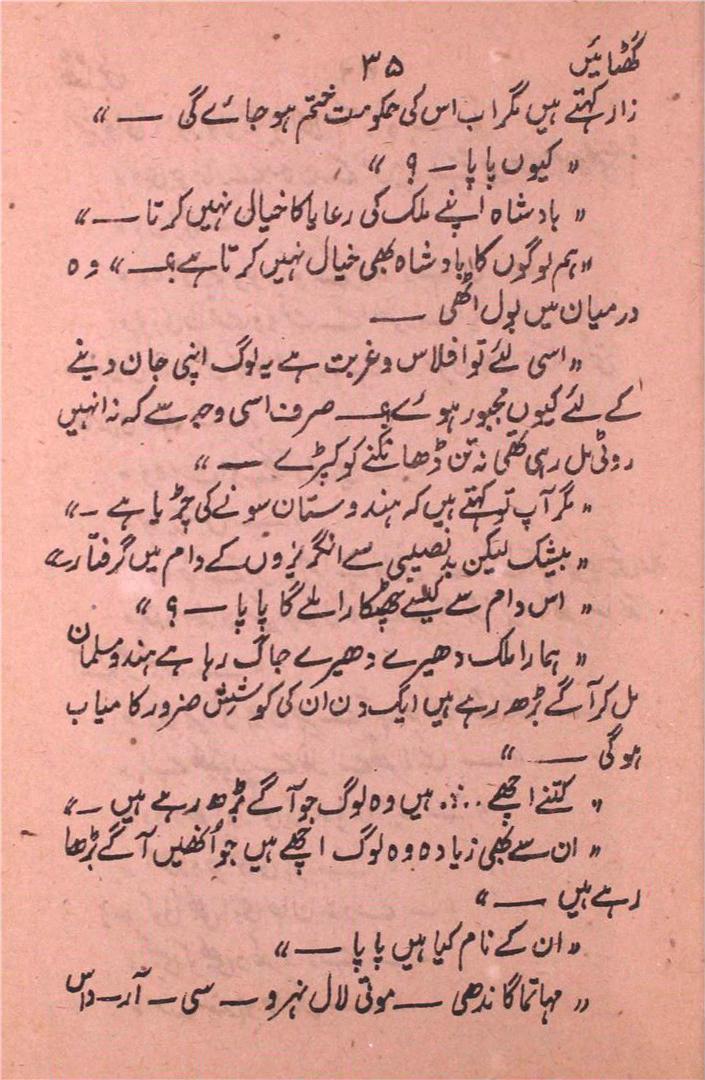 گھٹائیں ۳۵
زار کہتے ہیں مگر اب اس کی حکومت ختم ہو جائے گی — "
" کیوں پاپا — ؟ "
" بادشاہ اپنے ملک کی رعایا کا خیال نہیں کرتا — "
" ہم لوگوں کا بادشاہ بھی خیال نہیں کرتا ہے؟ — " وہ
درمیان میں بول اٹھی —
" اسی لئے تو افلاس و غربت ہے یہ لوگ اپنی جان دینے
کے لئے کیوں مجبور ہوئے؟ — صرف اسی وجہ سے کہ نہ انہیں
روٹی مل رہی تھی نہ تن ڈھانکنے کو کپڑے — "
" مگر آپ تو کہتے ہیں کہ ہندوستان سونے کی چڑیا ہے — "
" بیشک لیکن بدنصیبی سے انگریزوں کے دام میں گرفتار ہے "
" اس دام سے کیسے چھٹکارا ملے گا پاپا — ؟ "
" ہمارا ملک دھیرے دھیرے جاگ رہا ہے ہندو مسلمان
مل کر آگے بڑھ رہے ہیں ایک دن ان کی کوشش ضرور کامیاب
ہوگی — "
" کتنے اچھے ... ہیں وہ لوگ جو آگے بڑھ رہے ہیں — "
" ان سے بھی زیادہ وہ لوگ اچھے ہیں جو اُنھیں آگے بڑھا
رہے ہیں — "
" ان کے نام کیا ہیں پاپا — "
" مہاتما گاندھی — موتی لال نہرو — سی — آر — داس